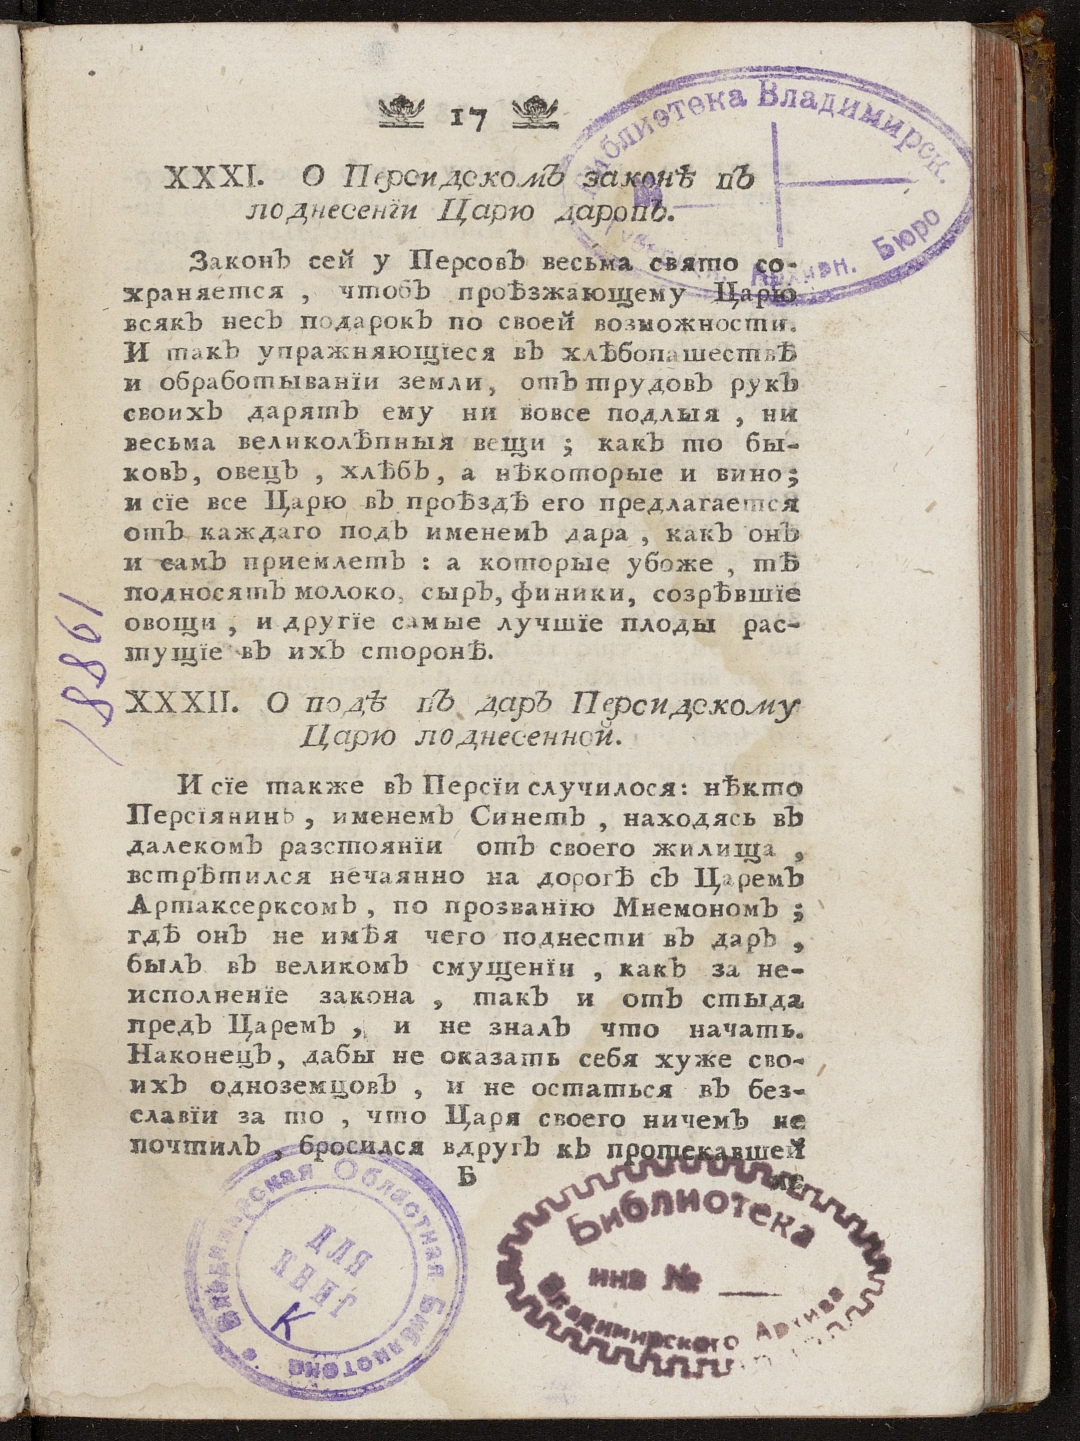 17
XXXI. О Персидскомъ законѣ въ
поднесенїи Царю даровъ.
Законъ сей у Персовъ весьма свято со-
храняется , чтобъ проѣзжающему Царю
всякъ несъ подарокъ по своей возможности.
И такъ упражняющїеся въ хлѣбопашествѣ
и обработыванїи земли, отъ трудовъ рукъ
своихъ дарятъ ему ни вовсе подлыя , ни
весьма великолѣпныя вещи ; какъ то бы-
ковъ, овецъ , хлѣбъ, а нѣкоторые и вино;
и сїе все Царю въ проѣздѣ его предлагается
отъ каждаго подъ именемъ дара , какъ онъ
и самъ приемлетъ : а которые убоже , тѣ
подносятъ молоко, сыръ, финики, созрѣвшїе
овощи , и другїе самые лучшїе плоды рас-
тущїе въ ихъ сторонѣ.
XXXII. О водѣ въ даръ Персидскому
Царю поднесенной.
И сїе также въ Персїи случилося: нѣкто
Персїянинъ , именемъ Синетъ , находясь въ
далекомъ разстоянїи отъ своего жилища ,
встрѣтился нечаянно на дорогѣ съ Царемъ
Артаксерксомъ , по прозванїю Мнемономъ ;
гдѣ онъ не имѣя чего поднести въ даръ ,
былъ въ великомъ смущенїи , какъ за не-
исполненїе закона , такъ и отъ стыда
предъ Царемъ , и не зналъ что начать.
Наконецъ, дабы не оказать себя хуже сво-
ихъ одноземцовъ , и не остаться въ без-
славїи за то , что Царя своего ничемъ не
почтилъ , бросился вдругъ къ протекавшей
Б
Библиотека Владимирск.
Бюро
18861
Владимирская Областная Библиотека
ДЛЯ
КНИГ
К
Библиотека
инв №
Владимирского Архива